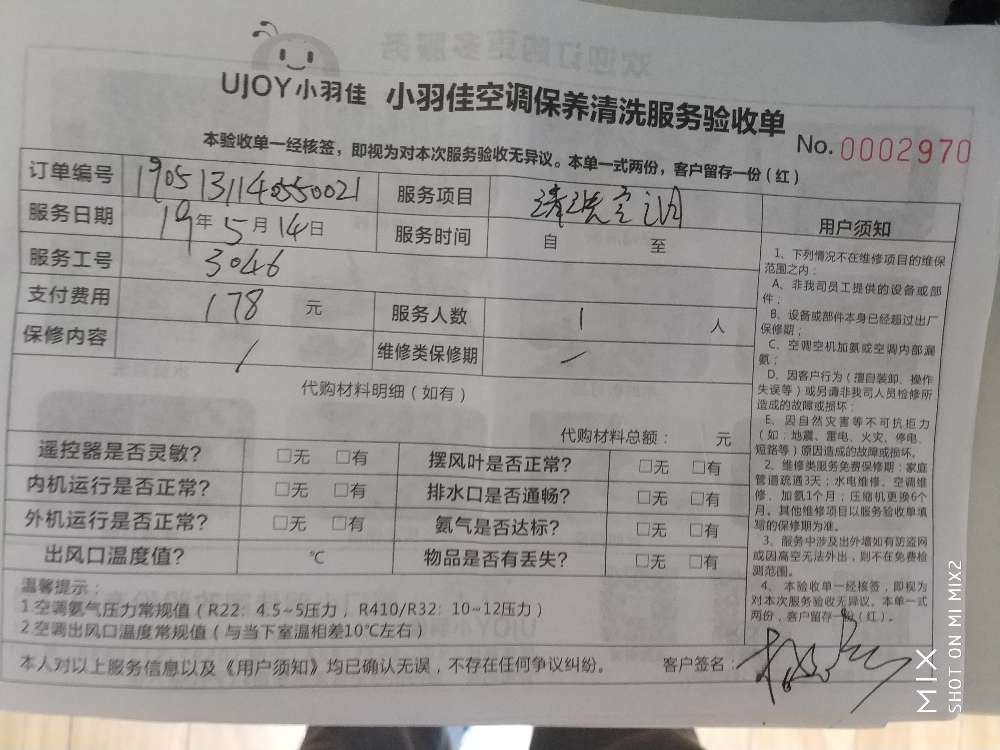 UJOY小羽佳 小羽佳空调保养清洗服务验收单
No. 0002970
本验收单一经核签，即视为对本次服务验收无异议。本单一式两份，客户留存一份（红）
订单编号 1905131140550021 服务项目 清洗空调
服务日期 19年5月14日 服务时间 自 至
服务工号 3046
支付费用 178 元 服务人数 1 人
保修内容 / 维修类保修期 /
代购材料明细（如有）
代购材料总额： 元
遥控器是否灵敏？ □无 □有 摆风叶是否正常？ □无 □有
内机运行是否正常？ □无 □有 排水口是否通畅？ □无 □有
外机运行是否正常？ □无 □有 氨气是否达标？ □无 □有
出风口温度值？ ℃ 物品是否有丢失？ □无 □有
温馨提示：
1.空调氨气压力常规值（R22：4.5~5压力，R410/R32：10~12压力）
2.空调出风口温度常规值（与当下室温相差10℃左右）
本人对以上服务信息以及《用户须知》均已确认无误，不存在任何争议纠纷。 客户签名：
用户须知
1、下列情况不在维修项目的维保
范围之内：
A、非我司员工提供的设备或部
件；
B、设备或部件本身已经超过出厂
保修期；
C、空调空机加氨或空调内部漏
氨；
D、因客户行为（擅自装卸、操作
失误等）或另请非我司人员检修所
造成的故障或损坏；
E、因自然灾害等不可抗拒力
（如：地震、雷电、火灾、停电、
短路等）原因造成的故障或损坏。
2、维修类服务免费保修期：家庭
管道疏通3天；水电维修、空调维
修、加氨1个月；压缩机更换6个
月。其他维修项目以服务验收单填
写的保修期为准。
3、服务中涉及出外墙如有防盗网
或因高空无法外出，则不在免费检
测范围。
4、本验收单一经核签，即视为
对本次服务验收无异议。本单一式
两份，客户留存一份（红）。
MIX
SHOT ON MI MIX2